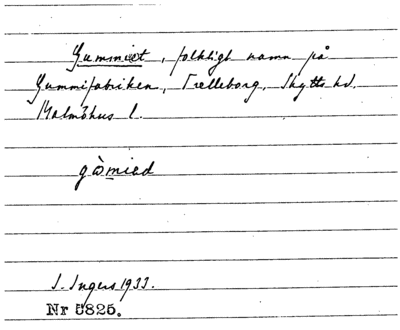 Gummiet, folkligt namn på
Gummifabriken, Trelleborg, Skytts hd.
Malmöhus l.
I. Ingers 1933.
Nr 5825.